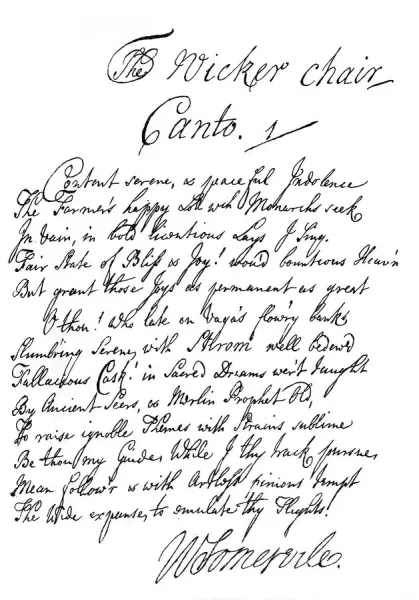 The Wicker chair
Canto. 1
Content serene, & peaceful Indolence
The Farmer's happy Lott wch Monarchs seek
In vain, in bold licentious Lays I Sing.
Fair State of Bliss & Joy! wou'd bounteous Heav'n
But grant those Joys as permanent as great
O thou! who late on Vaga's flow'ry banks
Slumb'ring Serene, with Strom well bedew'd
Fallacious Cask! in Sacred Dreams wer't taught
By Ancient Seers, & Merlin Prophet Old,
To raise ignoble Themes with Strains sublime
Be thou my Guide, While I thy track poursue,
Mean follow'r & with Artless pinions tempt
The Wide expanse, to emulate thy Flights.
WSomervile.